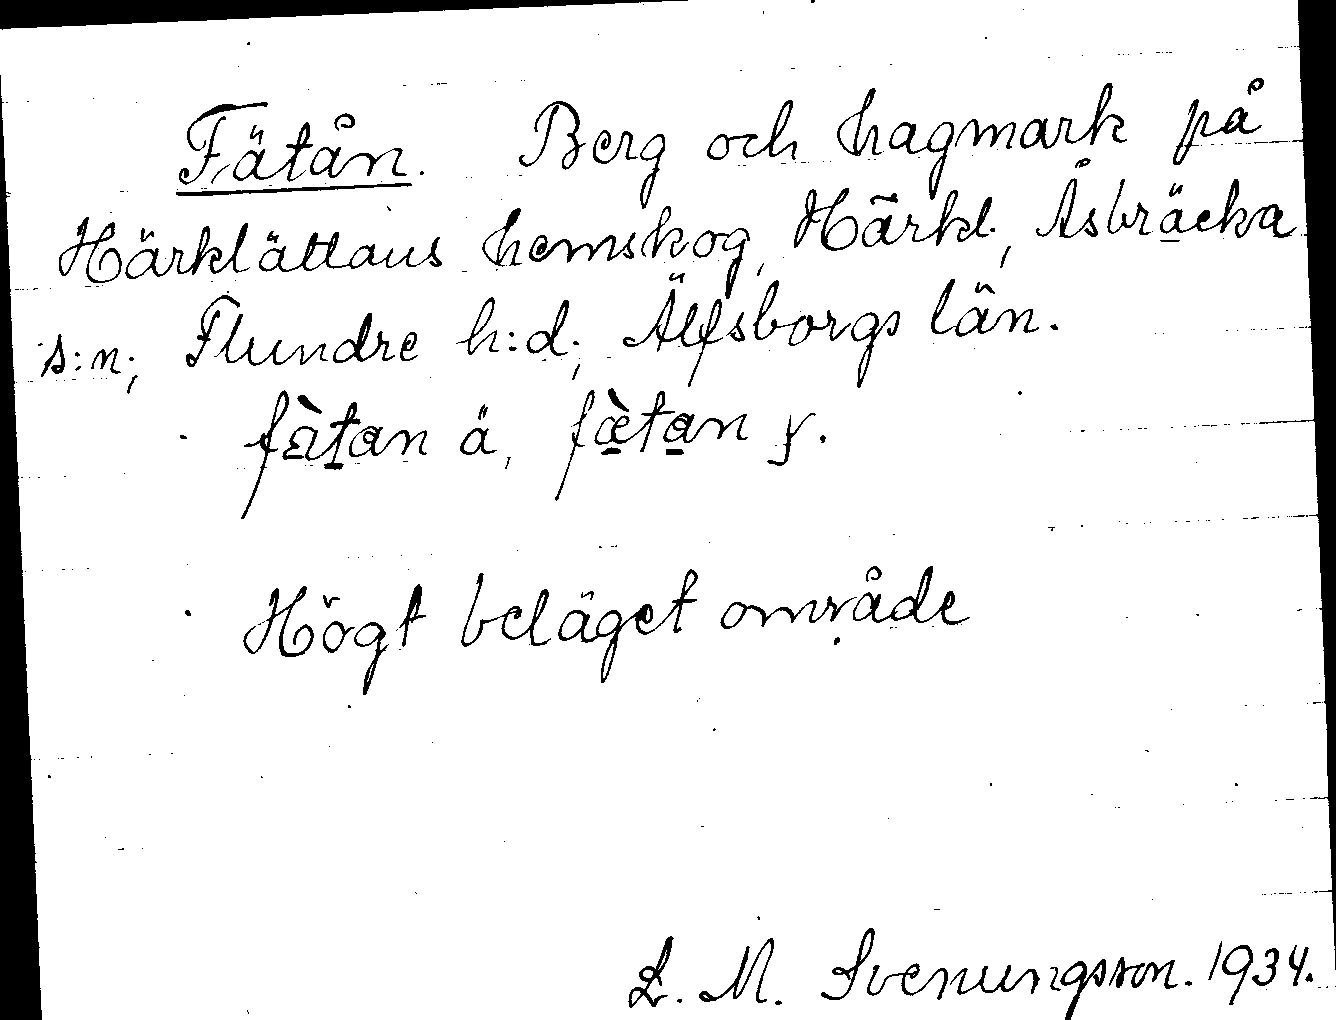 Fätån. Berg och hagmark på
Härklättans hemskog, Härkl., Åsbräcka
s:n; Flundre h:d; Älfsborgs län.
fàtan ä, fætan y.
Högt beläget område
L. M. Svenungsson. 1934.